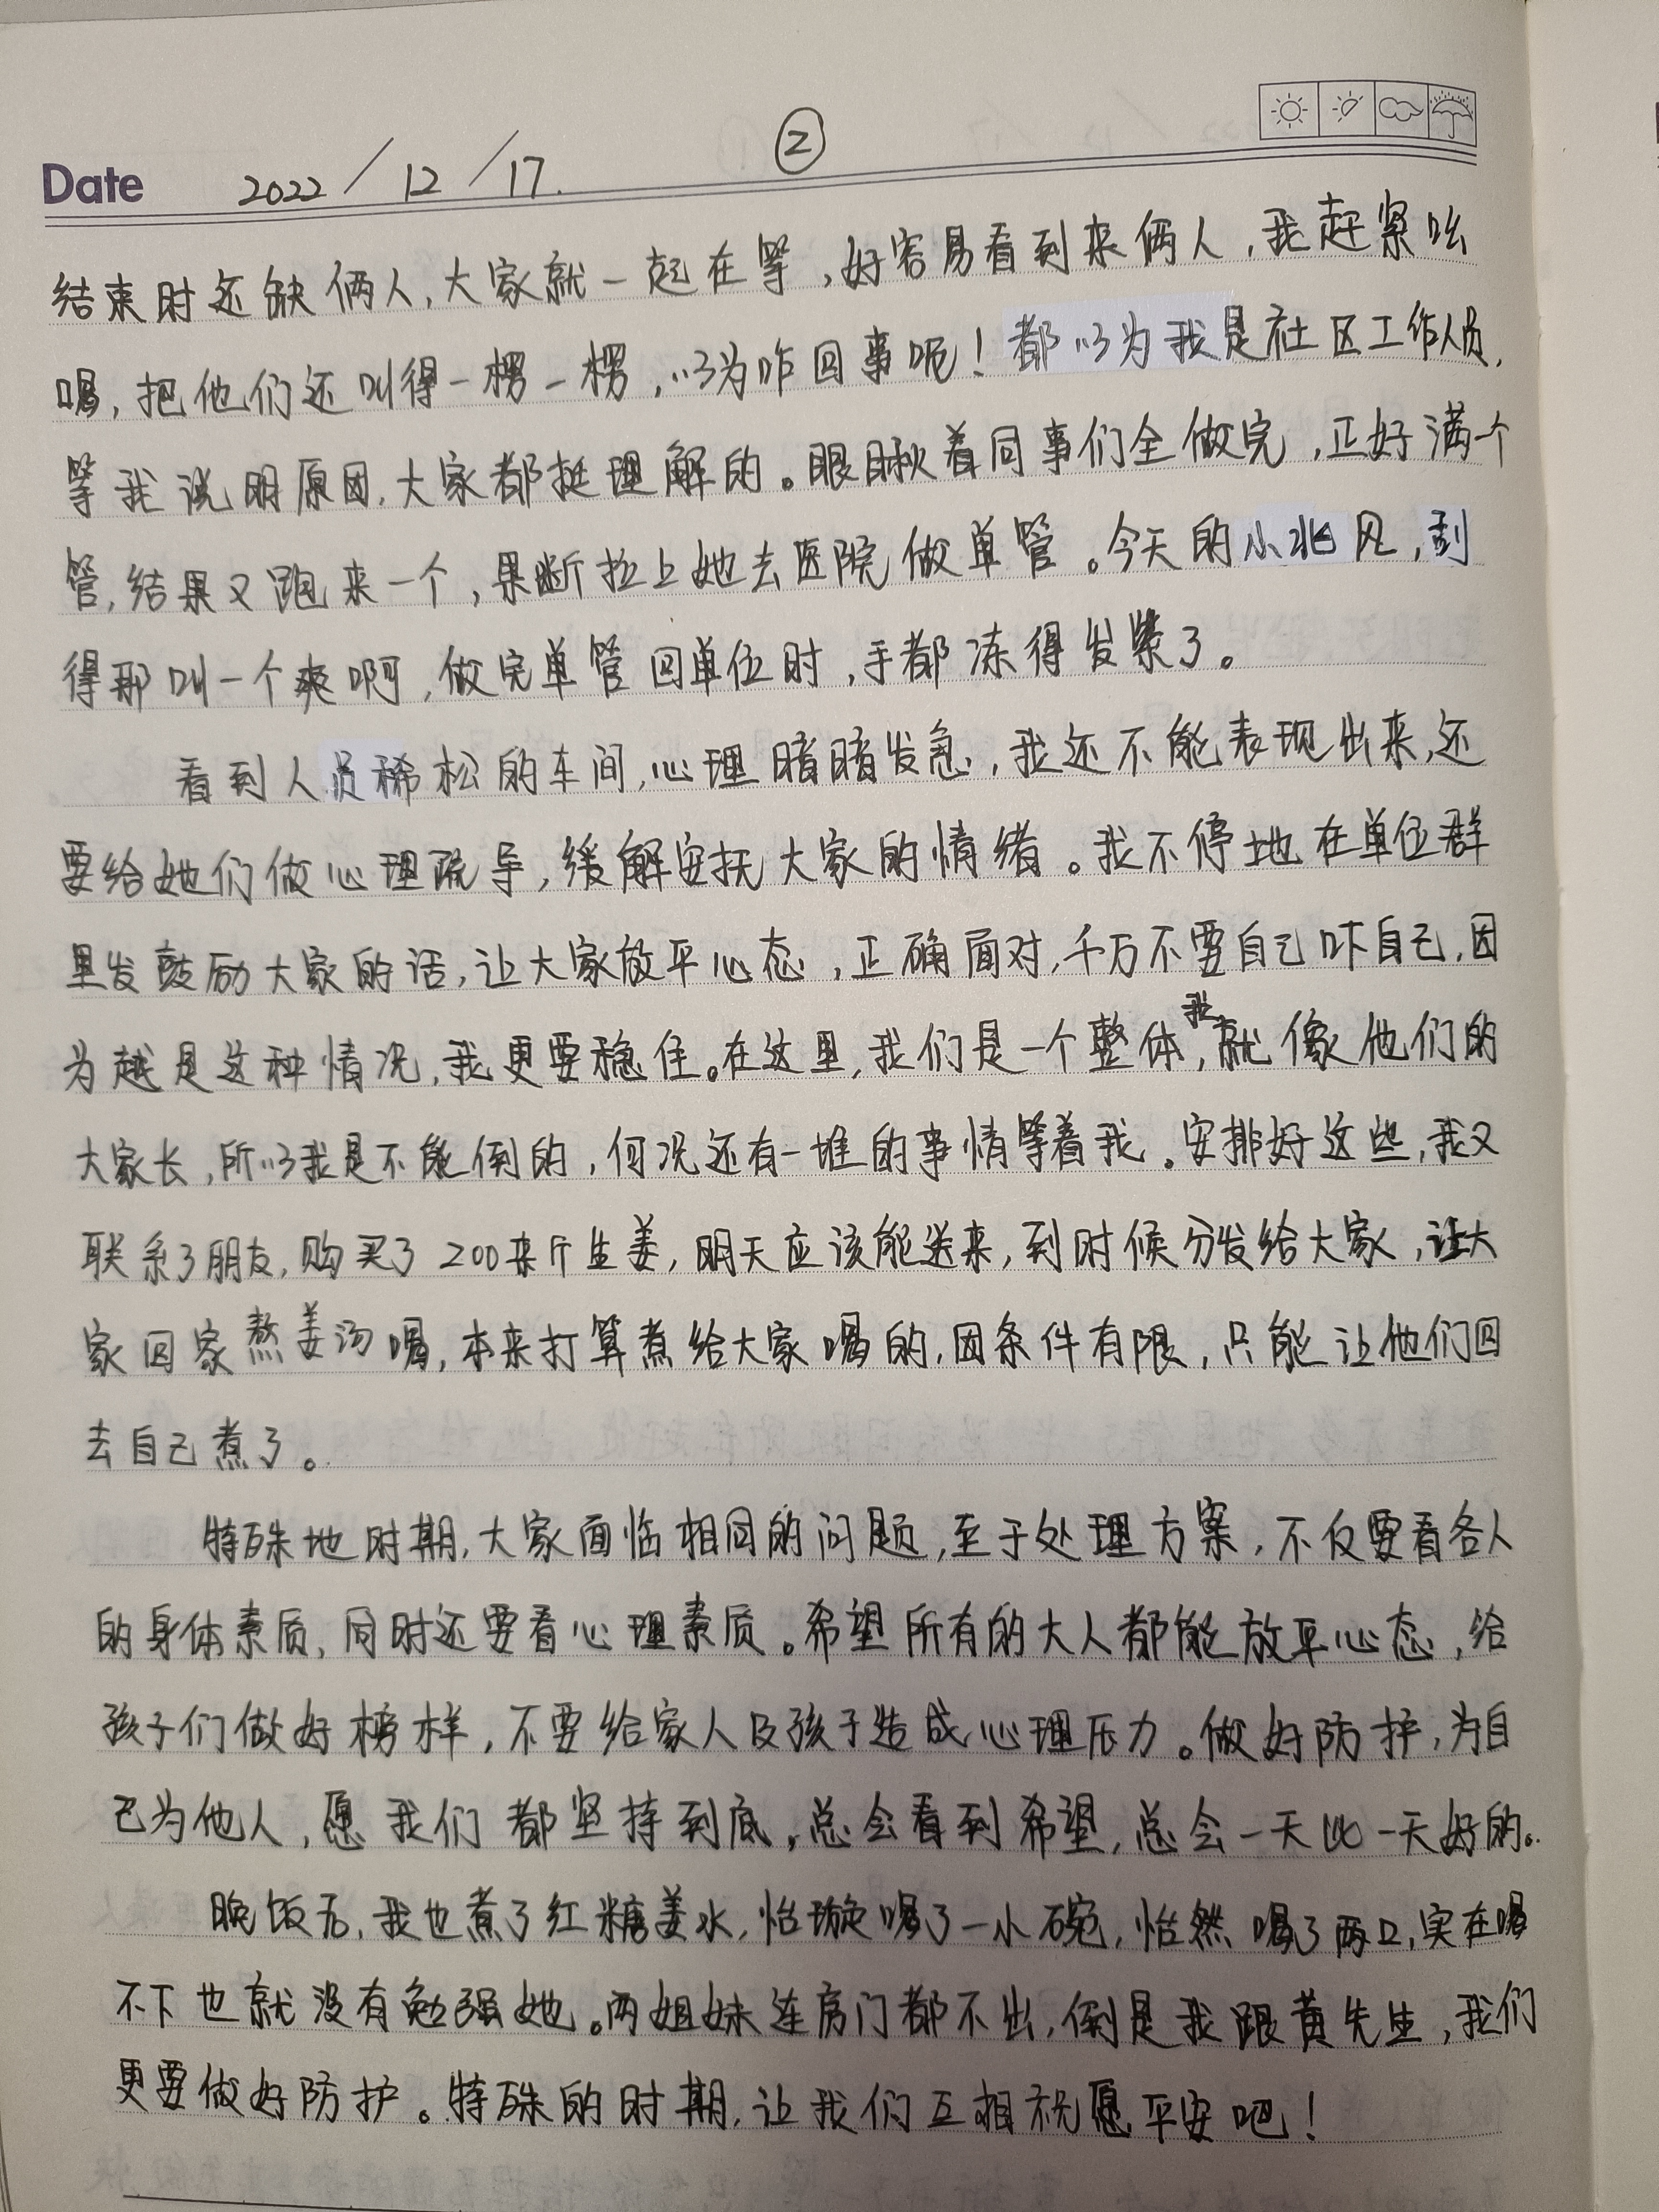 ②
Date 2022/12/17.
结束时还缺俩人,大家就一起在等,好容易看到来俩人,我赶紧吆
喝,把他们还叫得一楞一楞,以为咋回事呢!都以为我是社区工作人员,
等我说明原因,大家都挺理解的。眼瞅着同事们全做完,正好满一个
管,结果又跑来一个,果断拉上她去医院做单管。今天的小北风,刮
得那叫一个爽啊,做完单管回单位时,手都冻得发紫了。
看到人员稀松的车间,心理暗暗发急,我还不能表现出来,还
要给她们做心理疏导,缓解安抚大家的情绪。我不停地在单位群
里发鼓励大家的话,让大家放平心态,正确面对,千万不要自己吓自己,因
为越是这种情况,我更要稳住。在这里,我们是一个整体,我就像他们的
大家长,所以我是不能倒的,何况还有一堆的事情等着我。安排好这些,我又
联系了朋友,购买了200来斤生姜,明天应该能送来,到时候分发给大家,让大
家回家熬姜汤喝,本来打算煮给大家喝的,因条件有限,只能让他们回
去自己煮了。
特殊地时期,大家面临相同的问题,至于处理方案,不仅要看各人
的身体素质,同时还要看心理素质。希望所有的大人都能放平心态,给
孩子们做好榜样,不要给家人及孩子造成心理压力。做好防护,为自
己为他人,愿我们都坚持到底,总会看到希望,总会一天比一天好的。
晚饭后,我也煮了红糖姜水,怡璇喝了一小碗,怡然喝了两口,实在喝
不下也就没有勉强她。两姐妹连房门都不出,倒是我跟黄先生,我们
更要做好防护。特殊的时期,让我们互相祝愿平安吧!